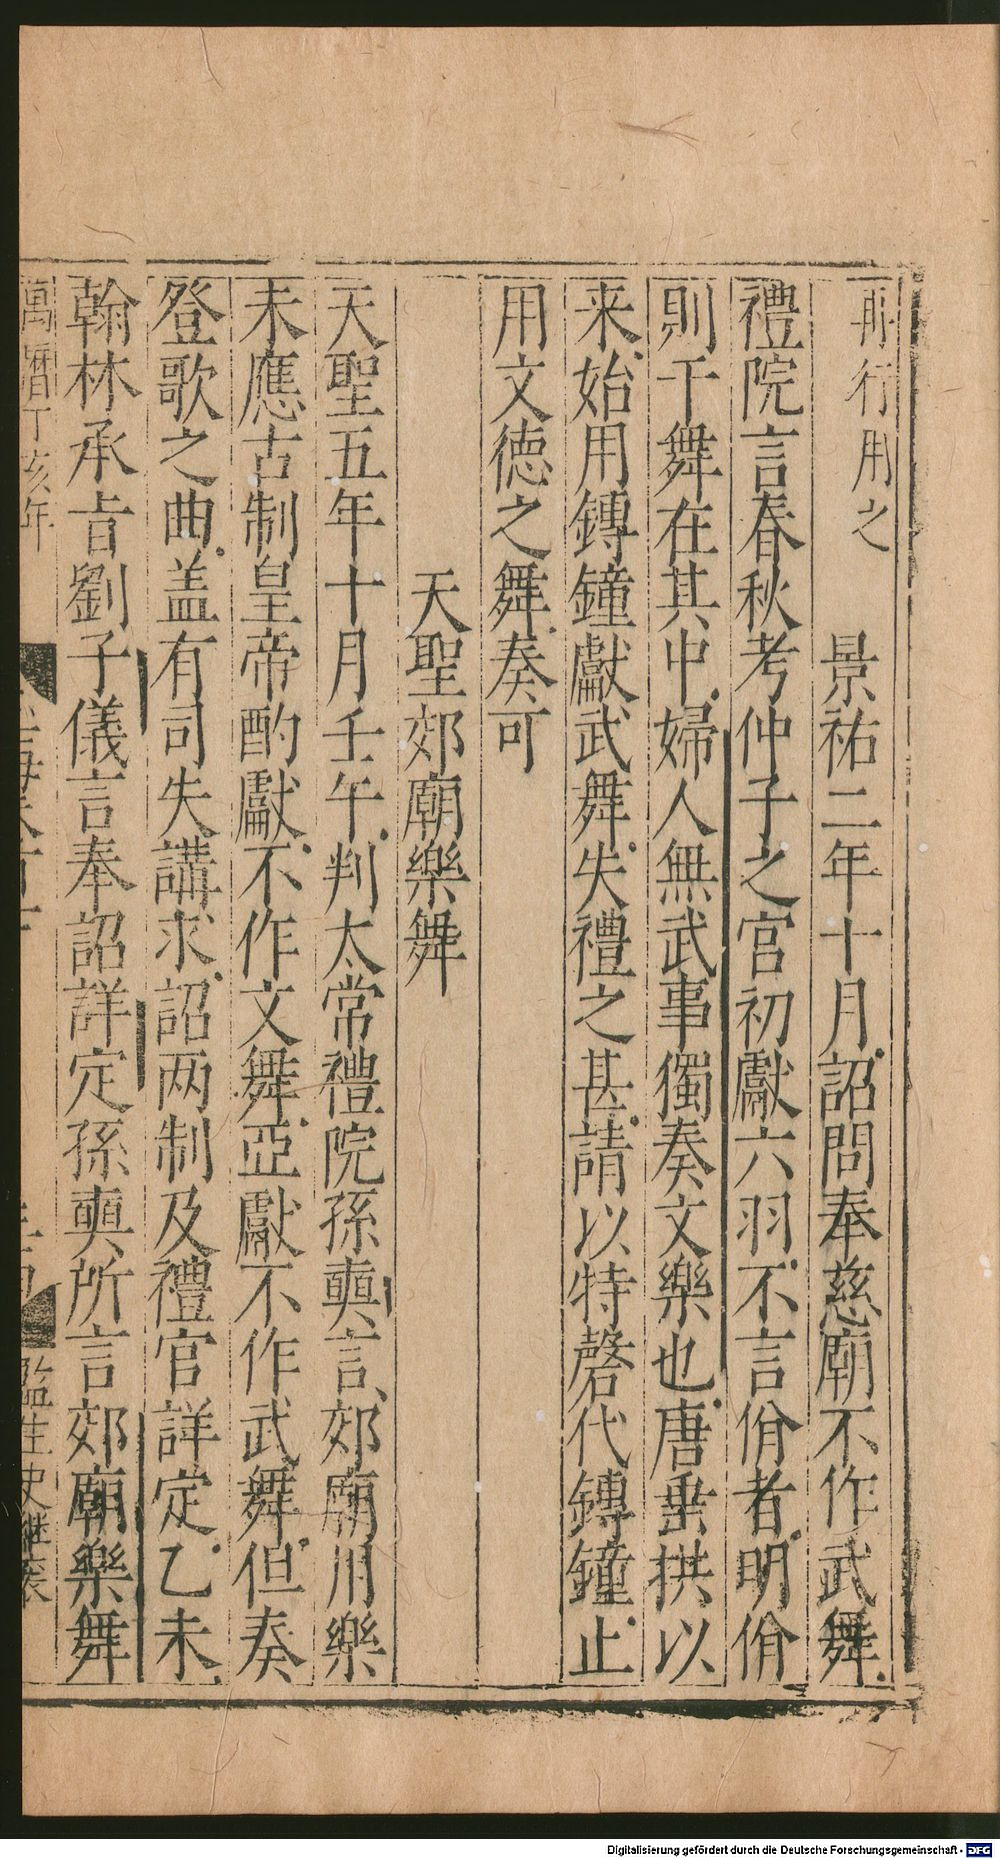 再行用之　景祐二年十月詔問奉慈廟不作武舞
禮院言春秋考仲子之宮初獻六羽不言佾者明佾
則干舞在其中婦人無武事獨奏文樂也唐垂拱以
来始用鏄鐘獻武舞失禮之甚請以特磬代鏄鐘止
用文德之舞奏可
天聖郊廟樂舞
天聖五年十月壬午判太常禮院孫奭言郊廟用樂
未應古制皇帝酌獻不作文舞亞獻不作武舞但奏
登歌之曲盖有司失講求詔两制及禮官詳定乙未
翰林承旨劉子儀言奉詔詳定孫奭所言郊廟樂舞
萬曆丁亥年
監生史繼辰
Digitalisierung gefördert durch die Deutsche Forschungsgemeinschaft - DFG